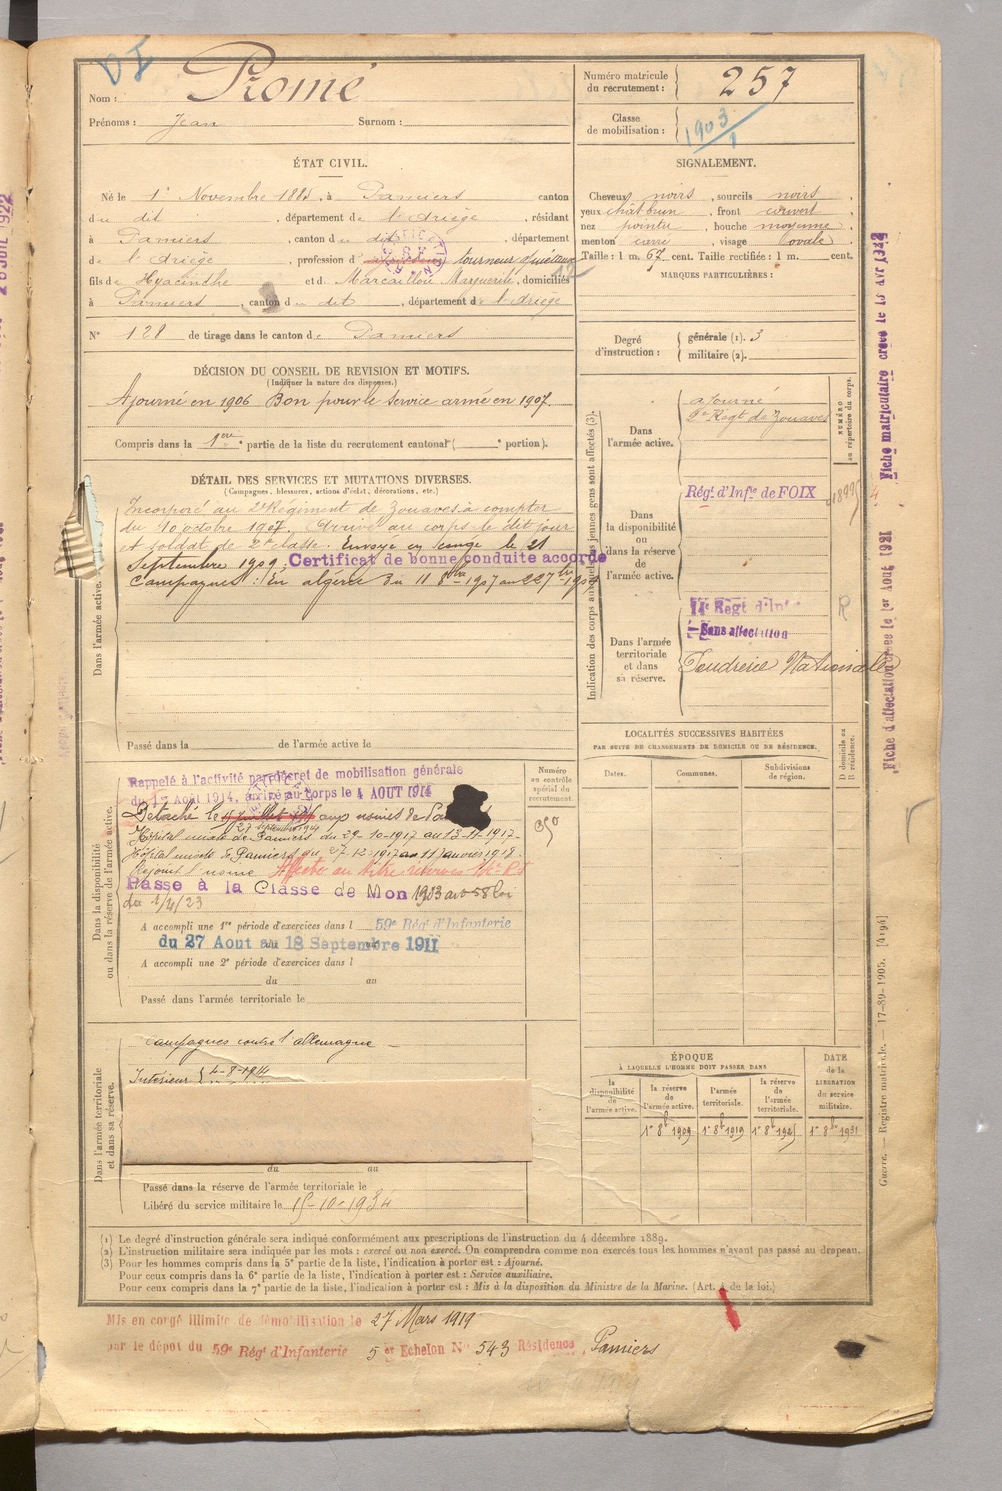 Nom : Promé
Prénoms : Jean Surnom :
Numéro matricule du recrutement : 257
Classe de mobilisation : 1903/1
ÉTAT CIVIL.
Né le 1er Novembre 1885, à Pamiers canton
du dit, département de l'Ariège, résidant
à Pamiers, canton du dit, département
de l'Ariège, profession d tourneur
fils de Hyacinthe et de Marcaillou Marguerite, domiciliés
à Pamiers, canton du dit, département de l'Ariège
N° 128 de tirage dans le canton de Pamiers
SIGNALEMENT.
Cheveux noirs, sourcils noirs
yeux chât brun, front couvert
nez pointu, bouche moyenne
menton carré, visage ovale
Taille : 1 m. 67 cent. Taille rectifiée : 1 m. cent.
MARQUES PARTICULIÈRES :
Degré d'instruction : générale (1). 3
militaire (2).
DÉCISION DU CONSEIL DE REVISION ET MOTIFS.
(Indiquer la nature des dispenses.)
Ajourné en 1906 Bon pour le service armé en 1907.
Compris dans la 1ère partie de la liste du recrutement cantonal ( e portion).
DÉTAIL DES SERVICES ET MUTATIONS DIVERSES.
(Campagnes, blessures, actions d'éclat, décorations, etc.)
Dans l'armée active.
Incorporé au 2e Régiment de Zouaves à compter
du 10 octobre 1907. Arrivé au corps le dit jour
et soldat de 2e classe. Envoyé en congé le 21
Septembre 1909. Certificat de bonne conduite accordé
Campagnes : En algérie Du 11 8bre 1907 au 22 7bre 1909
Passé dans la de l'armée active le
Indication des corps auxquels les jeunes gens sont affectés (3).
NUMÉRO au répertoire du corps.
Dans l'armée active.
ajourné
2e Regt de Zouaves
Dans la disponibilité ou dans la réserve de l'armée active.
Régt d'Infie de FOIX
Dans l'armée territoriale et dans sa réserve.
Regt d'Inf
Sans affectation
Poudrerie Nationale
R
LOCALITÉS SUCCESSIVES HABITÉES
PAR SUITE DE CHANGEMENTS DE DOMICILE OU DE RÉSIDENCE.
Dates. Communes. Subdivisions de région. D domicile ou R résidence.
Dans la disponibilité ou dans la réserve de l'armée active.
Numéro au contrôle spécial du recrutement.
Rappelé à l'activité par décret de mobilisation générale
du 1er Août 1914, arrivé au corps le 4 AOUT 1914
Détaché le aux usines de
Hôpital mixte de Pamiers du 29-10-1917 au 13-11-1917
Hôpital mixte de Pamiers du 27-12-1917 au 11 janvier 1918.
Rejoint l'usine Affecté au titre réserves
Passé à la Classe de Mon 1903 art 58 loi
du 1/4/23
A accompli une 1re période d'exercices dans l 59e Régt d'Infanterie
du 27 Aout au 18 Septembre 1911
A accompli une 2e période d'exercices dans l
du au
Passé dans l'armée territoriale le
Dans l'armée territoriale et dans sa réserve.
Campagnes contre l'allemagne
Intérieur 4-8-1914
du au
Passé dans la réserve de l'armée territoriale le
Libéré du service militaire le 15-10-1934
ÉPOQUE
À LAQUELLE L'HOMME DOIT PASSER DANS
DATE de la LIBÉRATION du service militaire.
la disponibilité de l'armée active. la réserve de l'armée active. l'armée territoriale. la réserve de l'armée territoriale.
1er 8b 1909 1er 8b 1919 1er 8b 1925 1er 8b 1931
(1) Le degré d'instruction générale sera indiqué conformément aux prescriptions de l'instruction du 4 décembre 1889.
(2) L'instruction militaire sera indiquée par les mots : exercé ou non exercé. On comprendra comme non exercés tous les hommes n'ayant pas passé au drapeau.
(3) Pour les hommes compris dans la 5e partie de la liste, l'indication à porter est : Ajourné.
Pour ceux compris dans la 6e partie de la liste, l'indication à porter est : Service auxiliaire.
Pour ceux compris dans la 7e partie de la liste, l'indication à porter est : Mis à la disposition du Ministre de la Marine. (Art. 4 de la loi.)
Mis en congé illimité de démobilisation le 27 Mars 1919
par le dépôt du 59e Régt d'Infanterie 5 er Echelon N° 543 Résidence, Pamiers
Fiche matriculaire créée le 15 AVR
Fiche d'affectation créée le 1er Août 1921
Guerre. — Registre matricule. — 17-89-1905. [4194]